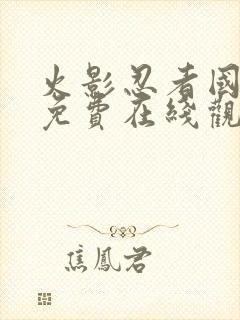 火影忍者國
免費在綫觀
焦鳳君